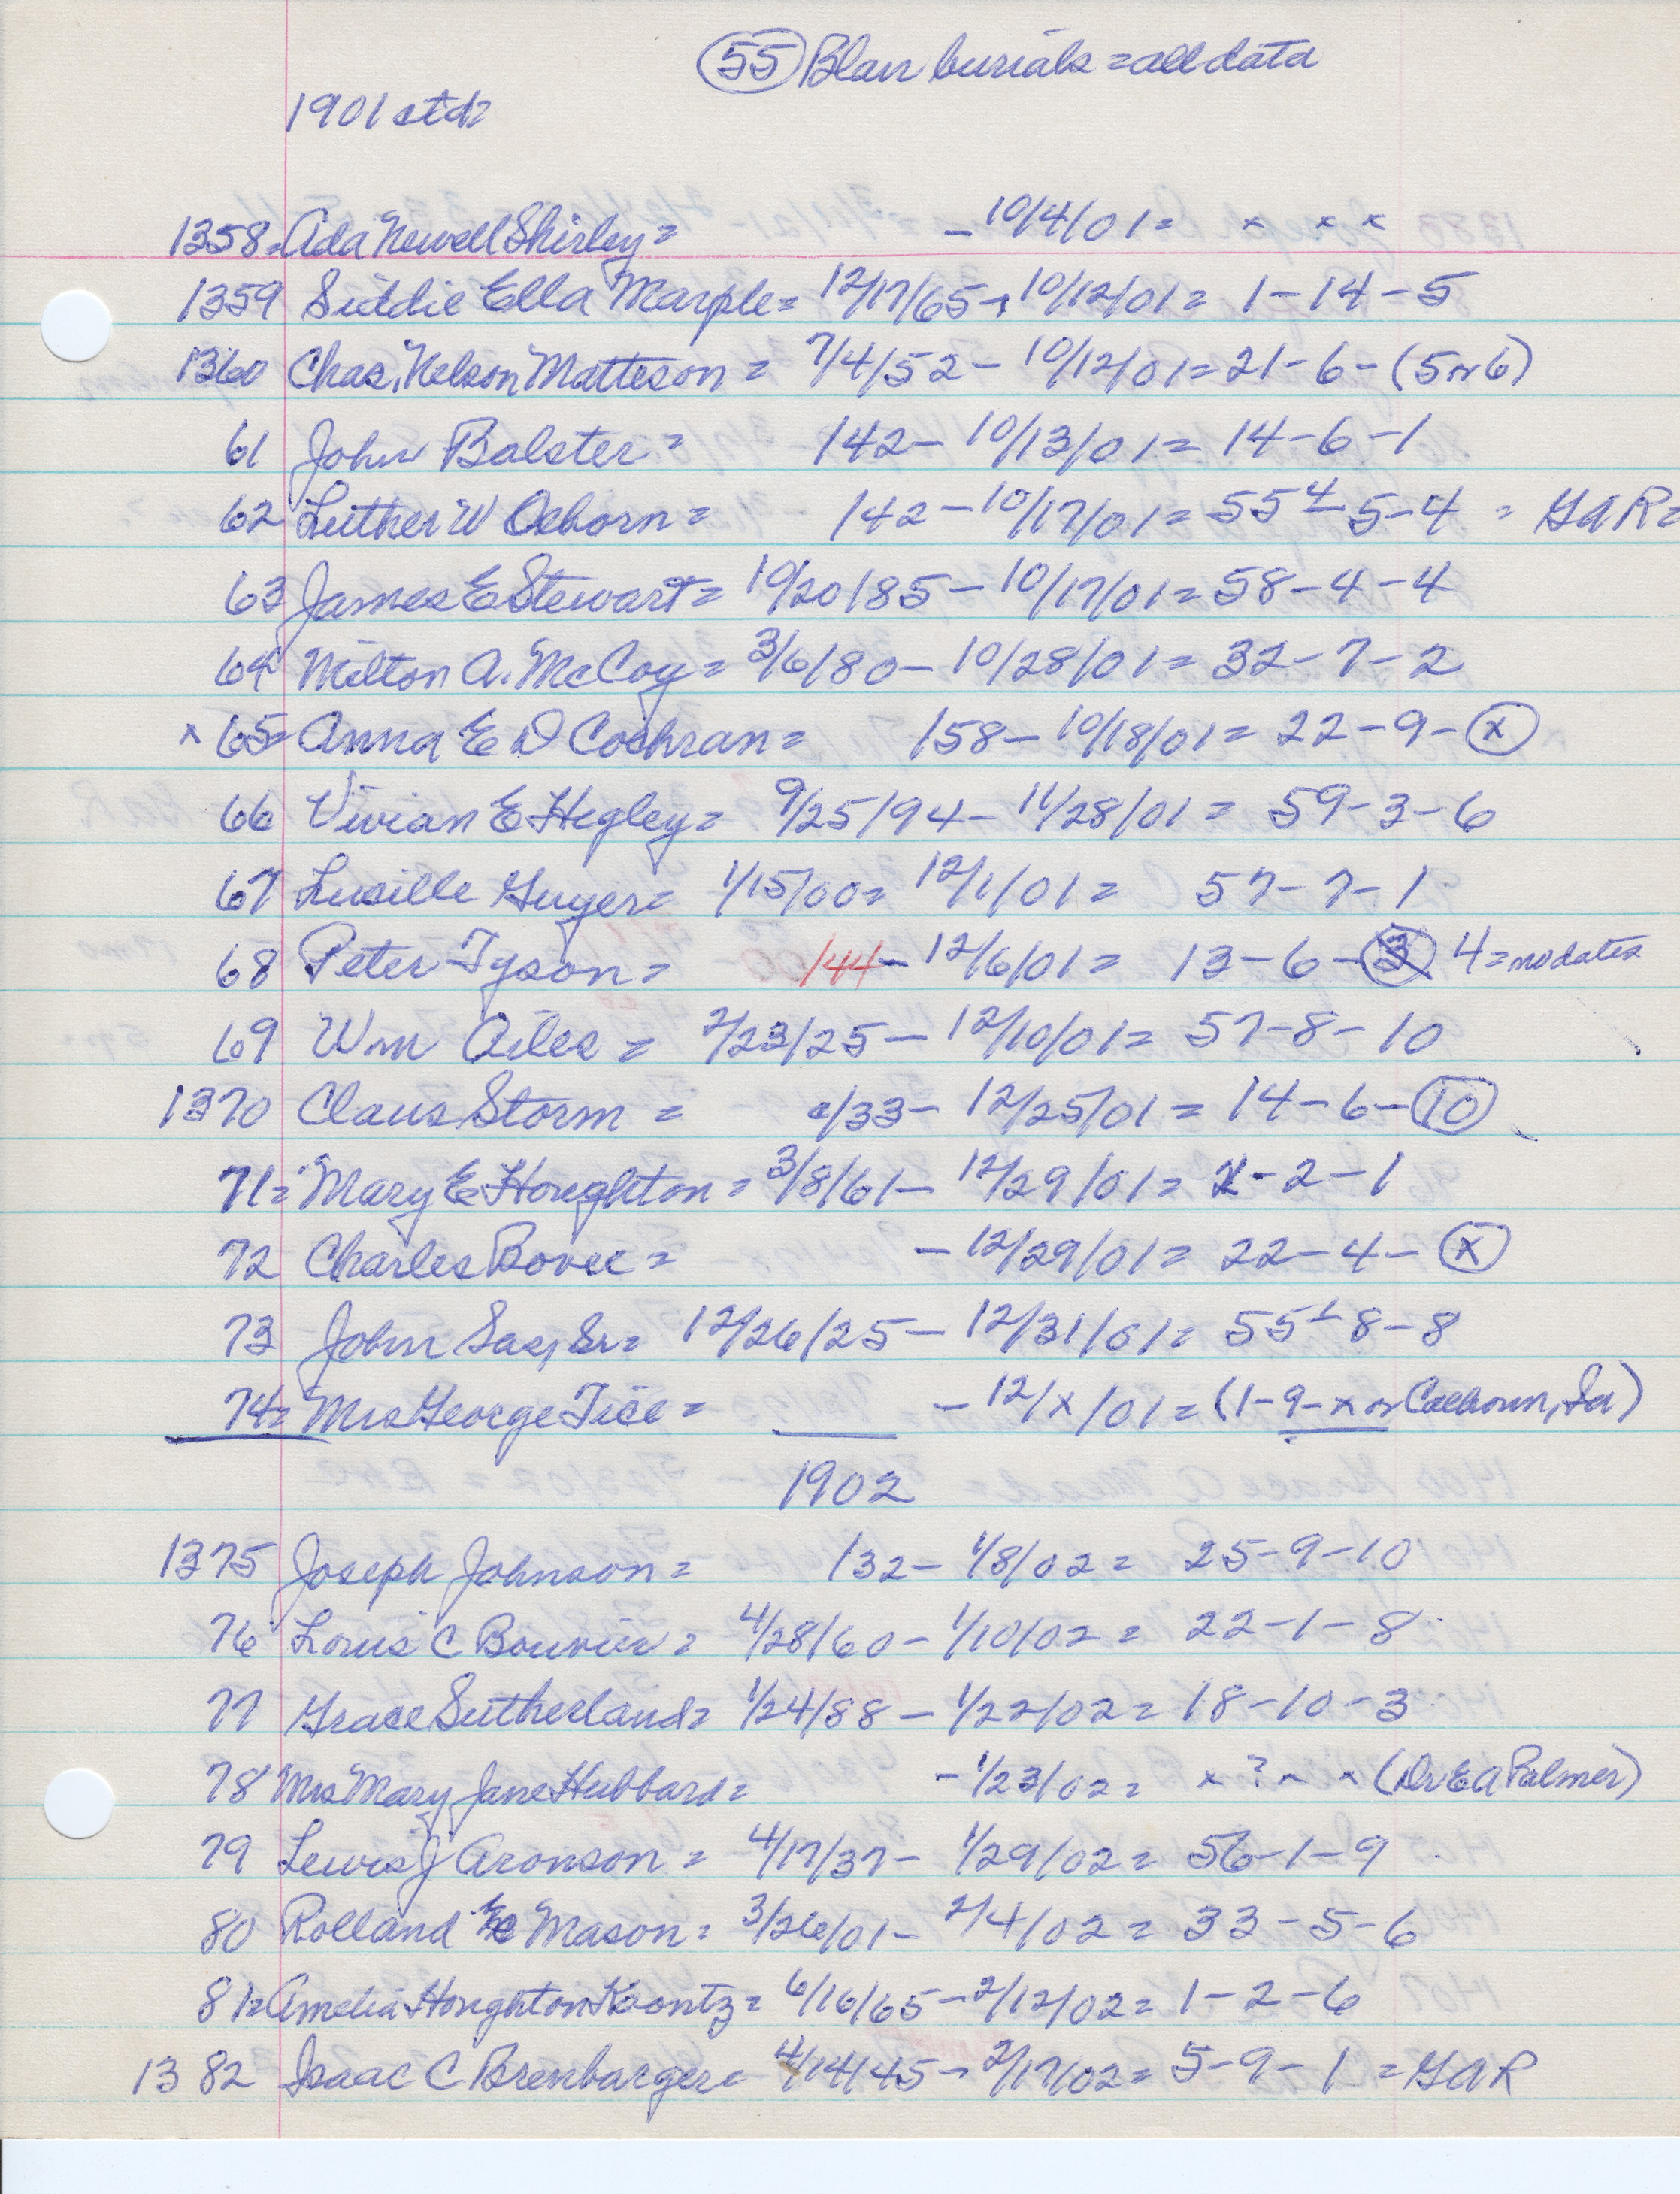 (55) Blair burials = all data
1901 ctd=
1358= Ada Newell Shirley = - 10/4/01 = x x x
1359 Siddie Ella Marple = 12/17/65 - 10/12/01 = 1-14-5
1360 Chas. Nelson Matteson = 7/4/52 - 10/12/01 = 21-6-(5 or 6)
61 John Balster = /42 - 10/13/01 = 14-6-1
62 Luther W Osborn = /42 - 10/17/01 = 55 4 5-4 = GAR=
63 James E Stewart = 10/20/85 - 10/17/01 = 58-4-4
64 Milton A. McCoy = 3/6/80 - 10/28/01 = 32-7-2
x 65= Anna E D Cochran = /58 - 10/18/01 = 22-9-(x)
66 Vivian E Hegley = 9/25/94 - 11/28/01 = 59-3-6
67 Lucille Guyer = 1/15/00 = 12/1/01 = 57-7-1
68 Peter Tyson = /44 - 12/6/01 = 13-6-(3) 4 = no dates
69 Wm Ailes = 2/23/25 - 12/10/01 = 57-8-10
1370 Claus Storm = c/33 - 12/25/01 = 14-6-(10)
71= Mary E Houghton = 3/8/61 - 12/29/01 = 1-2-1
72 Charles Bovee = - 12/29/01 = 22-4-(x)
73 John Sas, Sr = 12/26/25 - 12/31/01 = 55 1 8-8
74= Mrs George Tice = - 12/x/01 = (1-9-x or Calhoun, Ia)
1902
1375 Joseph Johnson = /32 - 1/8/02 = 25-9-10
76 Louis C Bouvier = 4/28/60 - 1/10/02 = 22-1-8
77 Grace Sutherland = 1/24/88 - 1/22/02 = 18-10-3
78 Mrs Mary Jane Hubbard = - 1/23/02 = x ? x x (Dr E A Palmer)
79 Lewis J Aronson = 4/17/37 - 1/29/02 = 56-1-9
80 Rolland E Mason = 3/26/01 - 2/4/02 = 33-5-6
81= Amelia Houghton Koontz = 6/16/65 - 2/12/02 = 1-2-6
1382 Isaac C Brenbarger = 4/14/45 - 2/17/02 = 5-9-1 = GAR